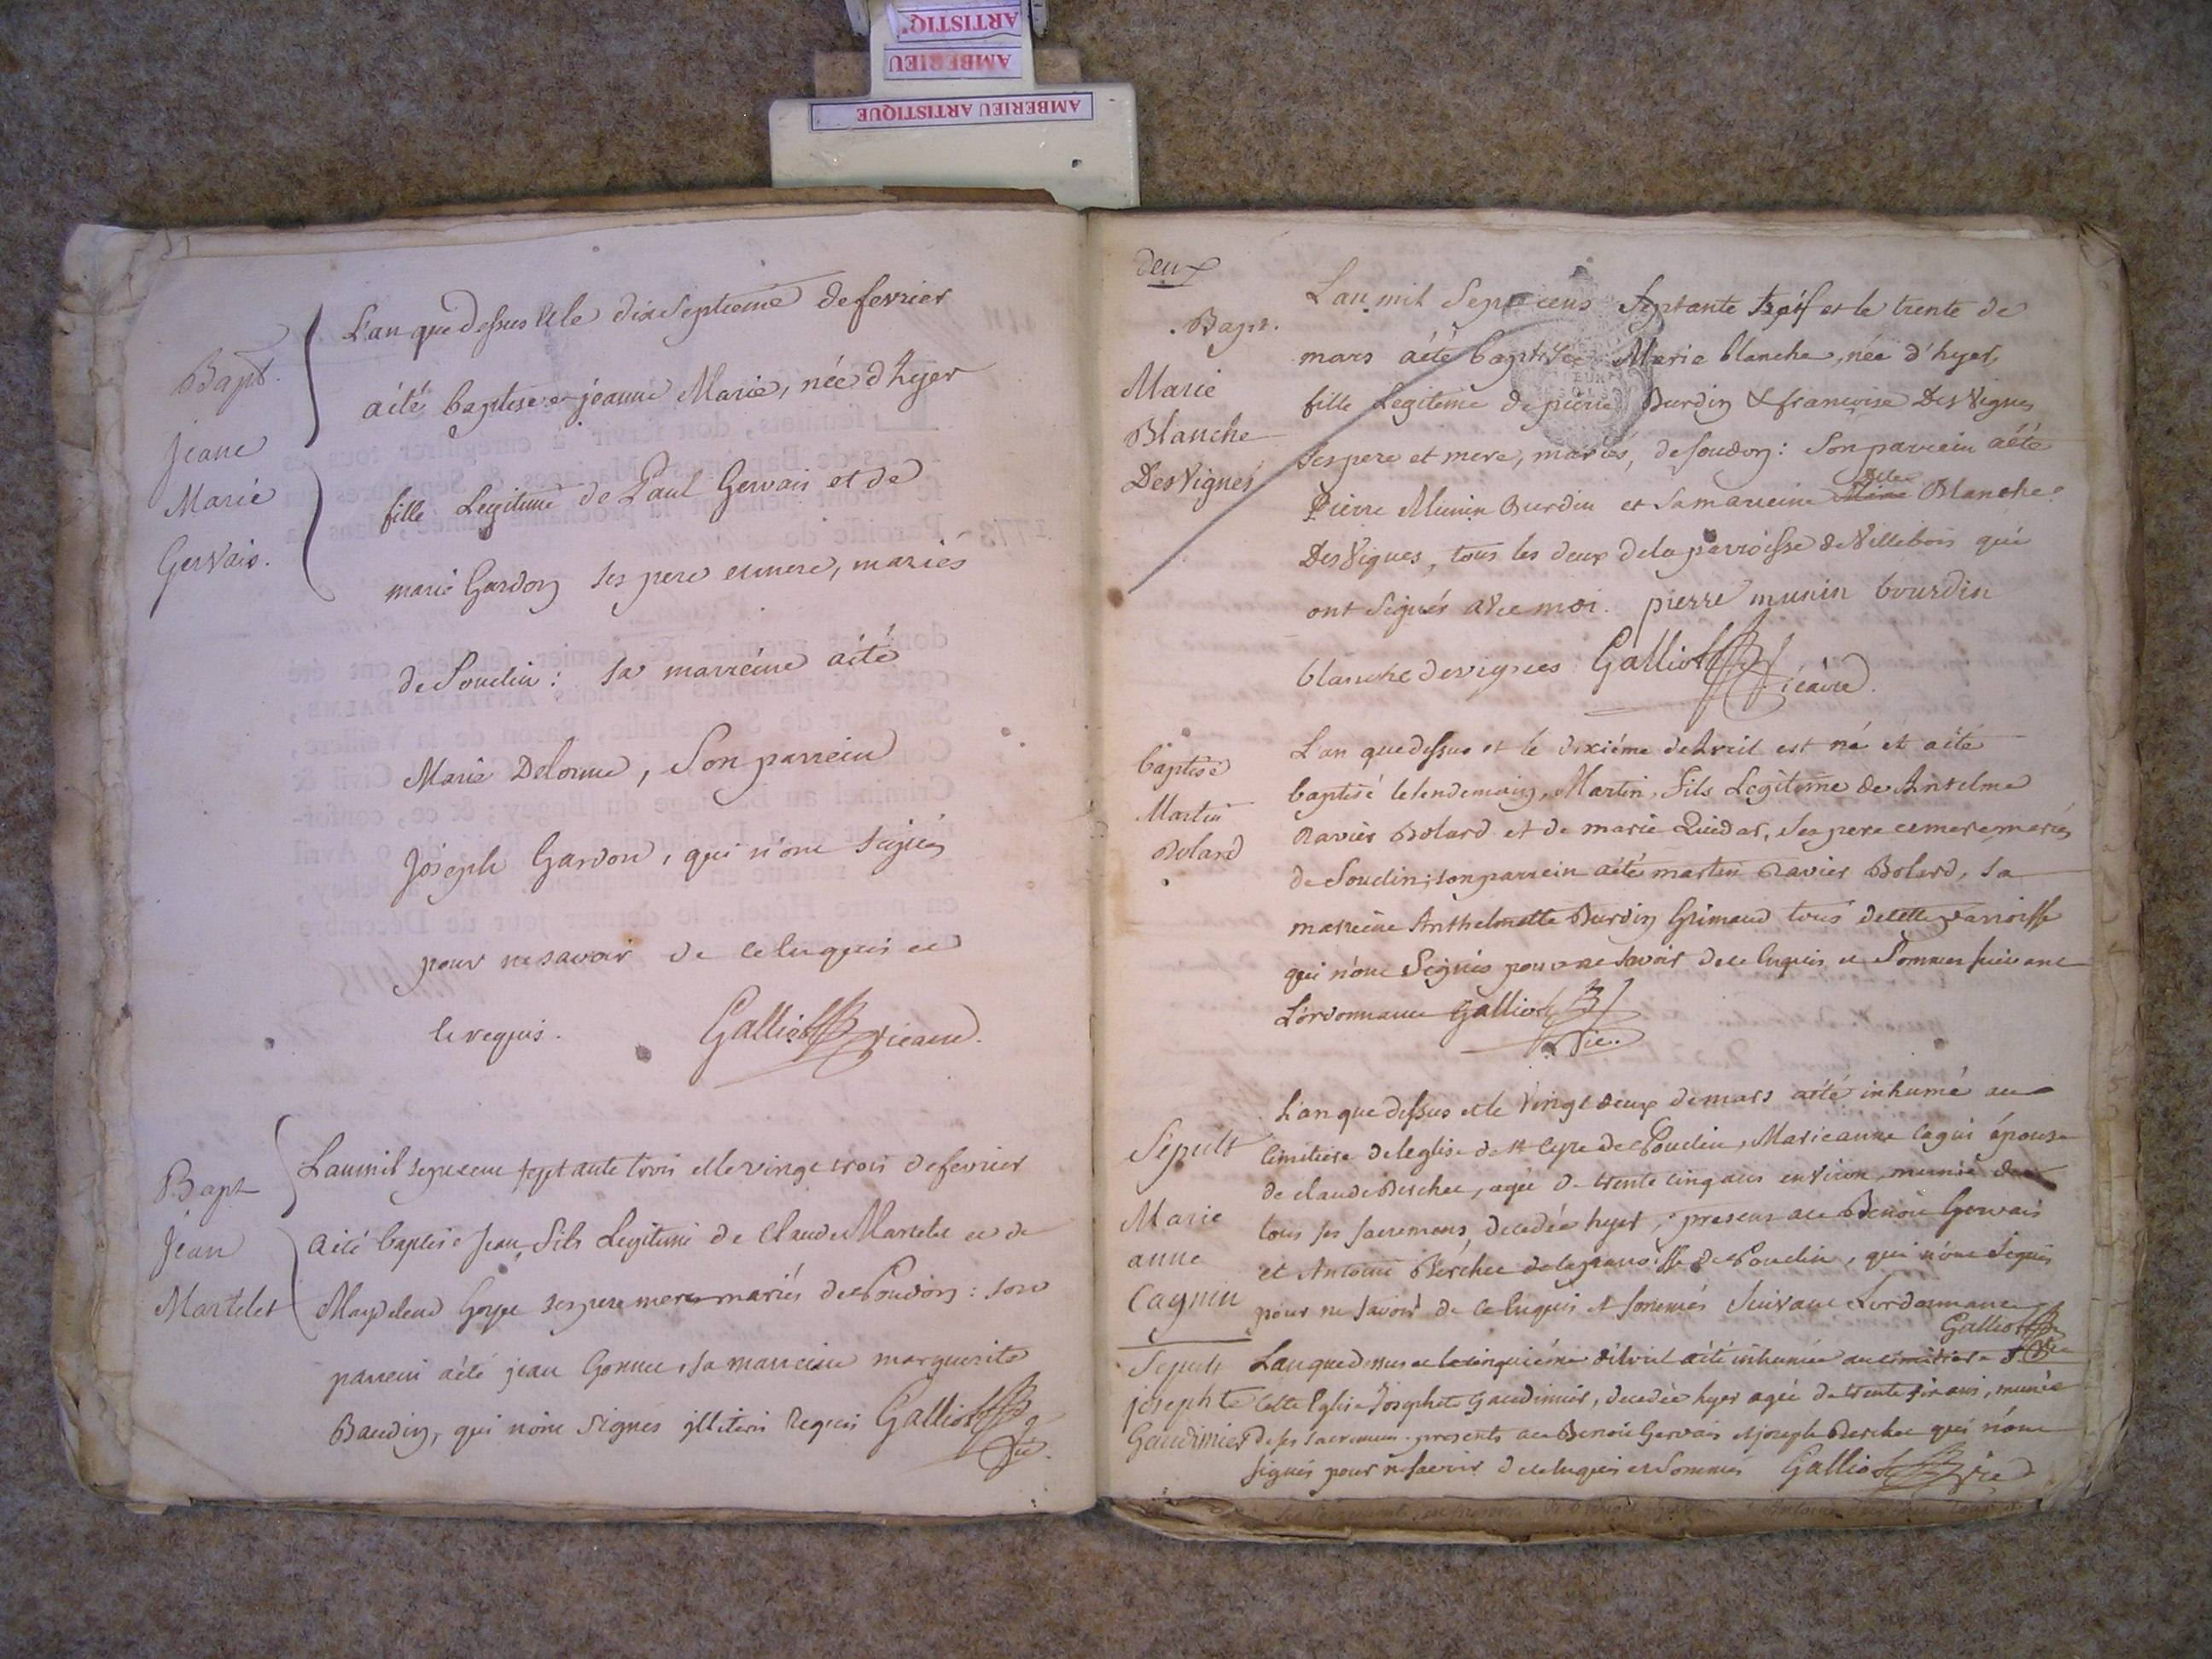 ARTISTIQ'
AMBERIEU
AMBERIEU ARTISTIQUE
Bapt.
Jeane
Marie
Gervais.
L'an que dessus et le dix Septieme de fevrier
a été baptisee jeanne Marie, née d'hyer
fille Legitime de Paul Gervais et de
marie Gardon ses pere et mere, mariés
de Soudin : sa marreine a été
Marie Delorme, Son parrein
Joseph Gardon, qui n'ont signés
pour ne savoir de ce enquis et
le requis. Galliot vicaire.
Bapt
Jean
Martelet
L'an mil sept cent septante trois et le vingt trois de fevrier
a été baptisé Jean fils Legitime de Claude Martelet et de
Magdelene ses pere mere mariés de Soudon : son
parrein a été jean sa marreine marguerite
Baudin, qui n'ont signés requis Galliot vic.
deux
Bapt.
Marie
Blanche
Des Vignes
L'an mil Sept cens Septante trois et le trente de
mars a été baptisée Marie blanche, née d'hyer,
fille Legitime de pierre Burdin & francoise Des Vignes
ses pere et mere, mariés, de soudon : Son parrein a été
Pierre Munin Burdin et sa marreine Dlle Blanche
Des Vignes, tous les deux de la parroisse de Villebois qui
ont Signés avec moi. pierre munin bourdin
blanche devignes Galliot vicaire.
baptisé
Martin
Bolard
L'an que dessus et le dixiéme de Avril est né et a été
baptisé le lendemain, Martin, fils Legitime de Antelme
Ravier Bolard et de marie Quidar, ses pere et mere mariés
de Soudin ; son parrein a été martin Ravier Bolard, sa
marreine Anthelmette Burdin Grimaud tous de cette parroisse
qui n'ont Signés pour ne savoir de ce enquis et Sommés suivant
L'ordonnance Galliot
Vic.
Sépult
Marie
anne
Cagnin
L'an que dessus et le Vingt deux de mars a été inhumé au
cimitiere de l'eglise de St Cyre de Soudin, Marieanne épouse
de claude Berchet, agée de trente cinq ans environ, munie de
tous ses sacremens, decedée hyer, presens a eu Benoit Gervais
et Antoine Berchet de la parroisse de Soudin, qui n'ont Signés
pour ne savoir de ce enquis et sommés Suivant L'ordonnance
Galliot
Sepult
josephte
Gaudinier
L'an que dessus et le cinquiéme d'Avril a été inhumée au cimitiere de
cette Eglise Josephte Gaudinier, decedée hyer agée de trente six ans, munie
de ses sacremens. presents a eu Benoit Gervais et joseph Berchet qui n'ont
signés pour ne savoir de ce enquis et Sommés Galliot vic